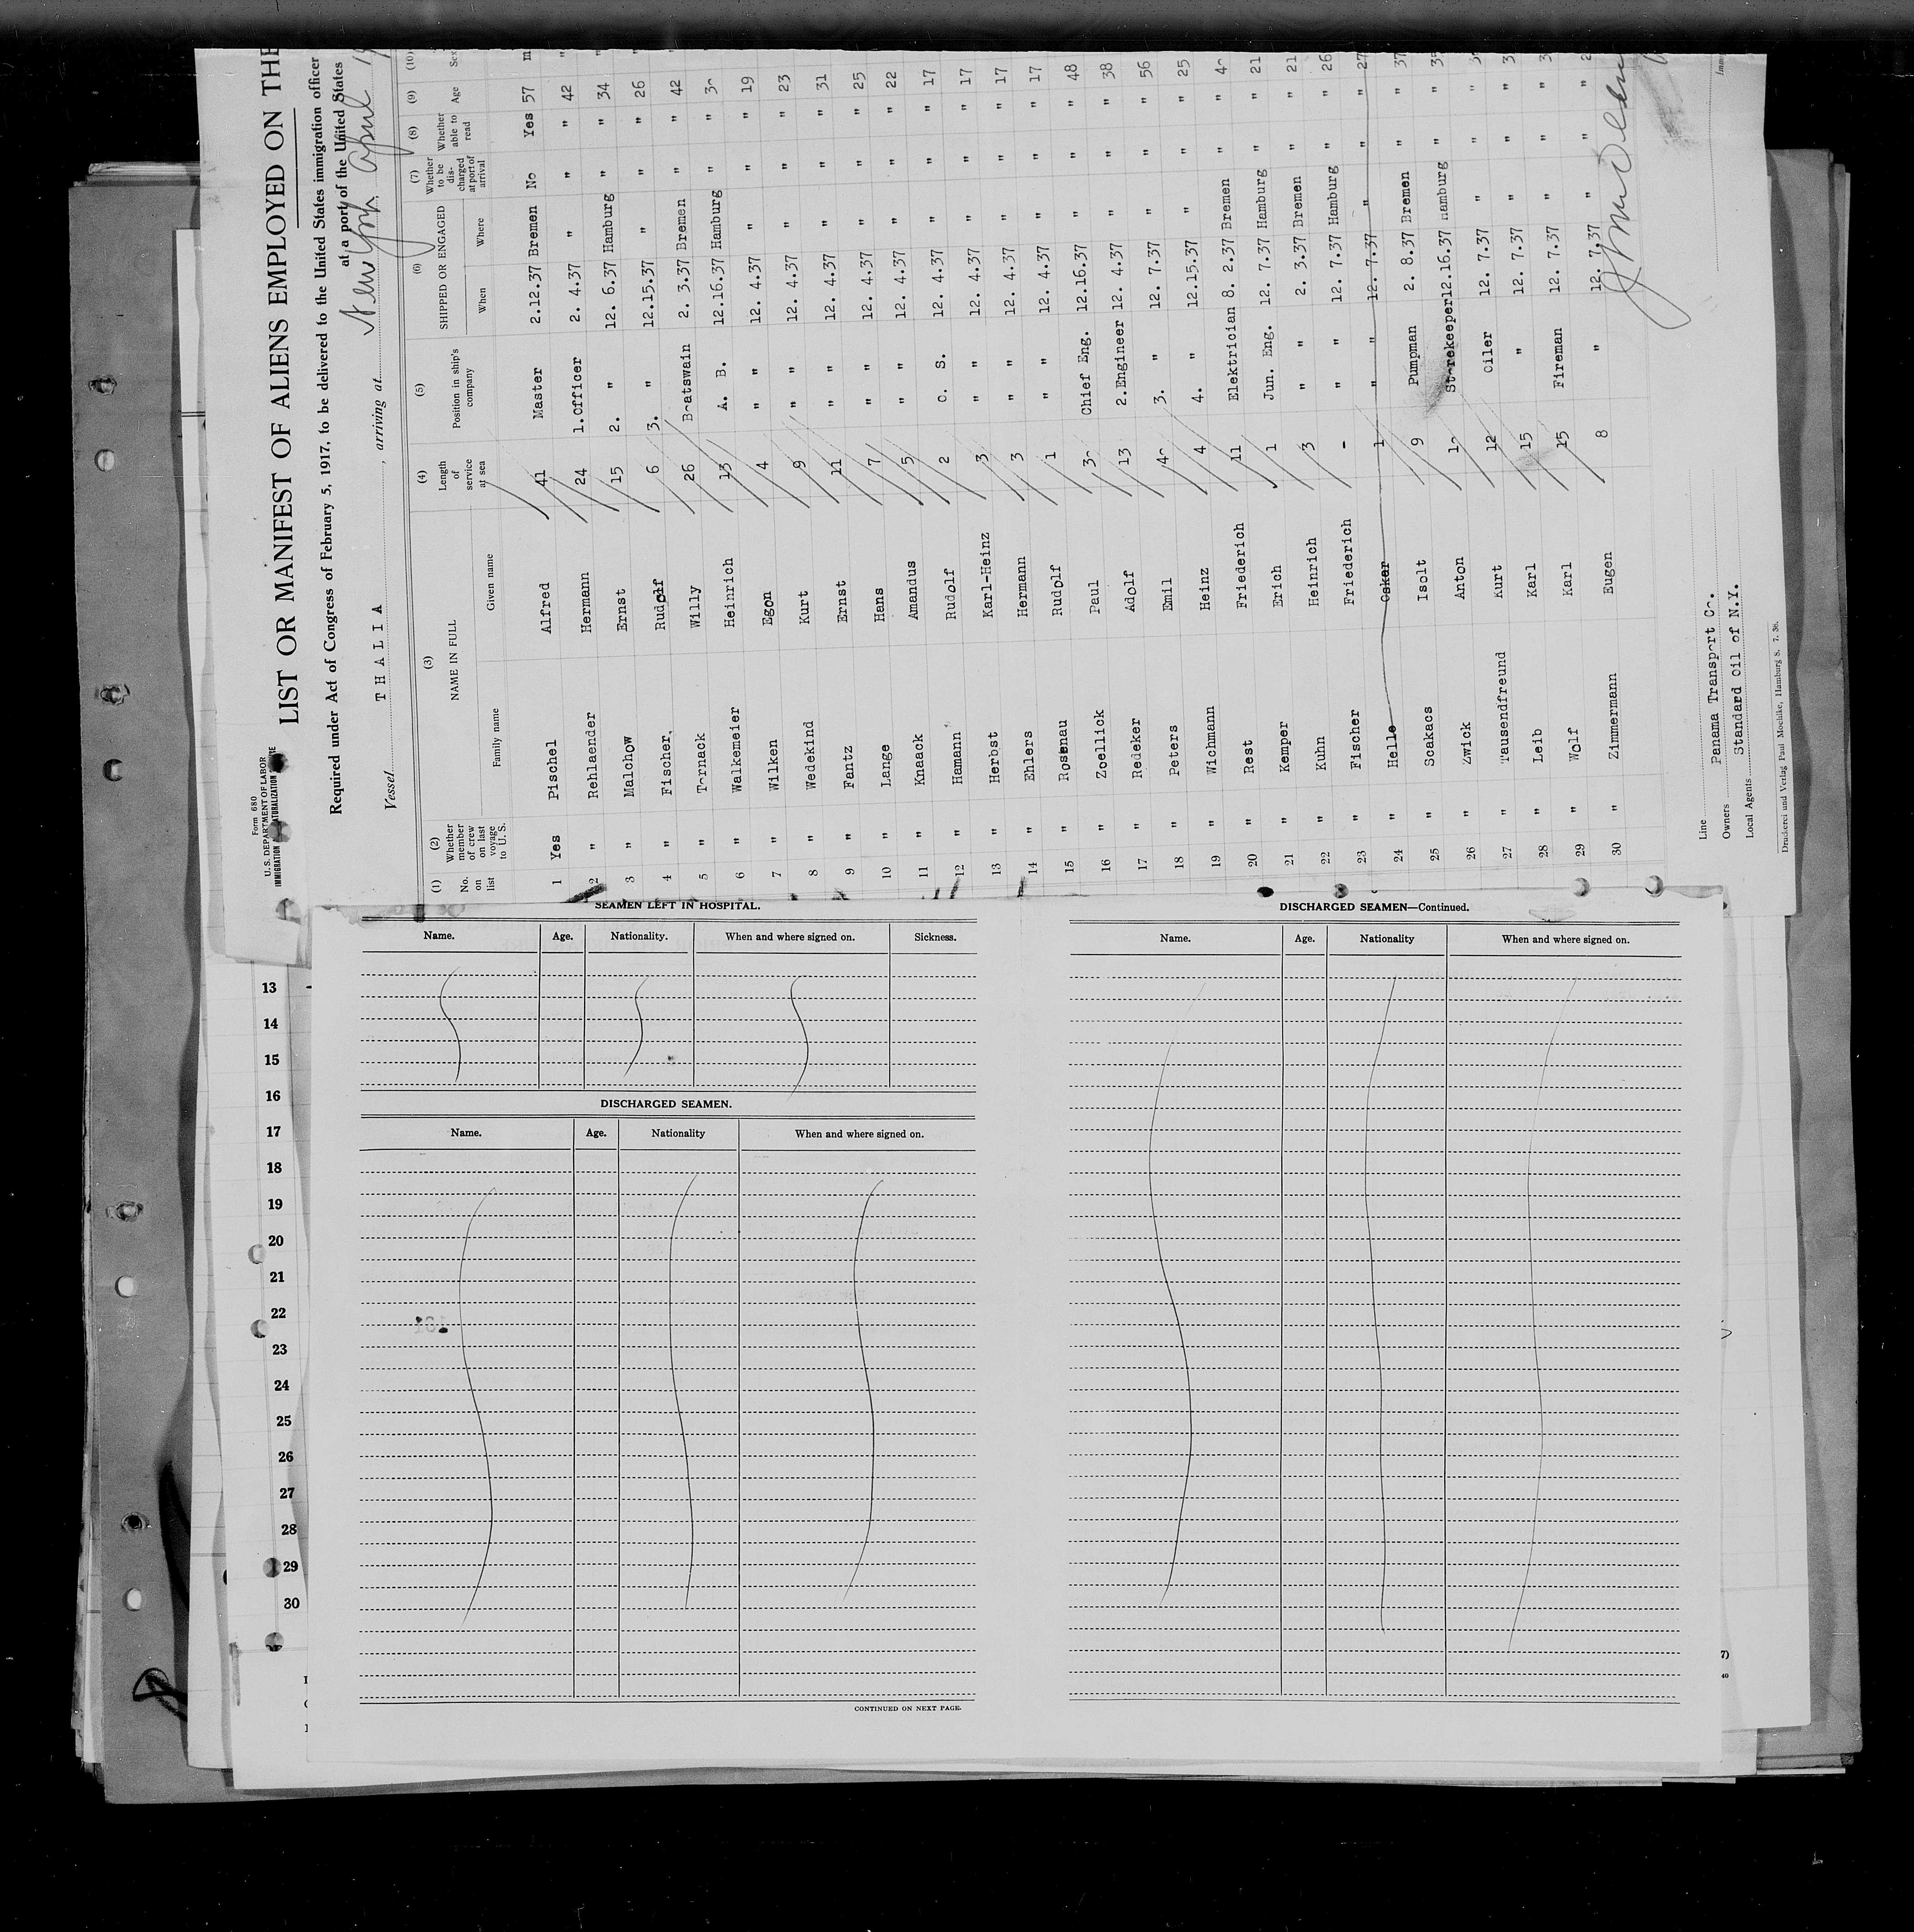 Form 680
U. S. DEPARTMENT OF LABOR
IMMIGRATION
LIST OR MANIFEST OF ALIENS EMPLOYED ON THE
Required under Act of Congress of February 5, 1917, to be delivered to the United States immigration officer
at a port of the United States
Vessel THALIA, arriving at New York April
(1) (2) (3) (4) (5) (6) (7) (8) (9) (10)
No. on list
Whether member of crew on last voyage to U. S.
NAME IN FULL
Family name Given name
Length of service at sea
Position in ship's company
SHIPPED OR ENGAGED
When Where
Whether to be discharged at port of arrival
Whether able to read
Age
Sex
1 Yes Pischel Alfred 41 Master 2.12.37 Bremen No Yes 57 m
2 " Rehlander Hermann 24 1.Officer 2. 4.37 " " " 42 "
3 " Malchow Ernst 15 2. " 12. 6.37 Hamburg " " 34 "
4 " Fischer Rudolf 6 3. " 12.15.37 " " " 26 "
5 " Tornack Willy 26 Boatswain 2. 3.37 Bremen " " 42
6 " Walkemeier Heinrich 13 A. B. 12.16.37 Hamburg " " 30
7 " Wilken Egon 4 " " 12. 4.37 " " " 19
8 " Wedekind Kurt 9 " " 12. 4.37 " " " 23
9 " Fantz Ernst 11 " " 12. 4.37 " " " 31
10 " Lange Hans 7 " " 12. 4.37 " " " 25
11 " Knaack Amandus 5 " " 12. 4.37 " " " 22
12 " Hamann Rudolf 2 O. S. 12. 4.37 " " " 17
13 " Herbst Karl-Heinz 3 " " 12. 4.37 " " " 17
14 " Ehlers Hermann 3 " " 12. 4.37 " " " 17
15 " Rosenau Rudolf 1 " " 12. 4.37 " " " 17
16 " Zoellick Paul 30 Chief Eng. 12.16.37 " " " 48
17 " Redeker Adolf 13 2.Engineer 12. 4.37 " " " 38
18 " Peters Emil 40 3. " 12. 7.37 " " " 56
19 " Wichmann Heinz 4 4. " 12.15.37 " " " 25
20 " Rest Friederich 11 Elektrician 8. 2.37 Bremen " " 40
21 " Kemper Erich 1 Jun. Eng. 12. 7.37 Hamburg " " 21
22 " Kuhn Heinrich 3 " " 2. 3.37 Bremen " " 21
23 " Fischer Friederich - " " 12. 7.37 Hamburg " " 26
24 " Helle Oskar 1 " " 12. 7.37 " " " 27
25 " Scakacs Isolt 9 Pumpman 2. 8.37 Bremen " " 37
26 " Zwick Anton 10 Storekeeper 12.16.37 Hamburg " " 35
27 " Tausendfreund Kurt 12 Oiler 12. 7.37 " " "
28 " Leib Karl 15 " 12. 7.37 " " "
29 " Wolf Karl 15 Fireman 12. 7.37 " " "
30 " Zimmermann Eugen 8 " 12. 7.37 " " "
Line
Owners Panama Transport Co.
Local Agents Standard Oil of N.Y.
Druckerei und Verlag Paul Moehlke, Hamburg 8. 7. 36.
13
14
15
16
17
18
19
20
21
22
23
24
25
26
27
28
29
30
SEAMEN LEFT IN HOSPITAL.
Name. Age. Nationality. When and where signed on. Sickness.
DISCHARGED SEAMEN.
Name. Age. Nationality When and where signed on.
CONTINUED ON NEXT PAGE.
DISCHARGED SEAMEN—Continued.
Name. Age. Nationality When and where signed on.